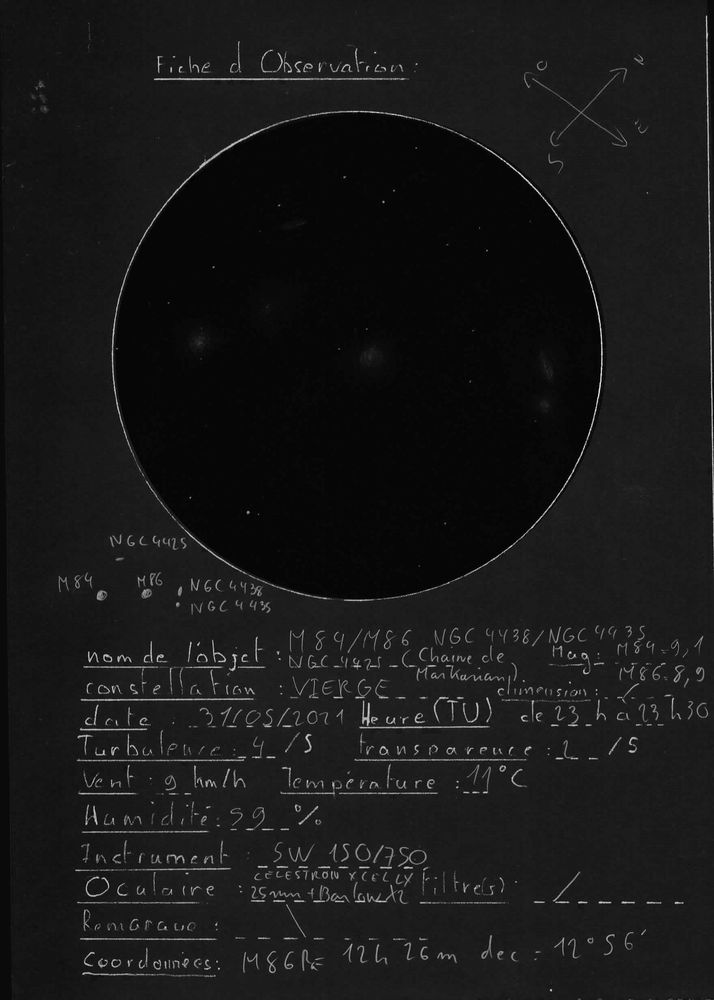 Fiche d Observation:
O N
S E
NGC 4425
M84 M86 NGC 4438
NGC 4435
nom de l'objet : M84/M86 NGC 4438/NGC 4435
NGC 4425 (Chaine de Markarian) Mag: M84=9,1
M86=8,9
constellation : VIERGE dimension: /
date : 31/05/2021 Heure (TU) de 23 h à 23 h 30
Turbulence: 4 /5 transparence : 2 /5
Vent : 9 km/h Température : 11°C
Humidité: 59 %
Instrument : SW 150/750
Oculaire : CELESTRON X CEL LX
25mm + Barlow X2 Filtre(s): /
Remarque : \
Coordonnées: M86 R= 12h 26m dec = 12°56'